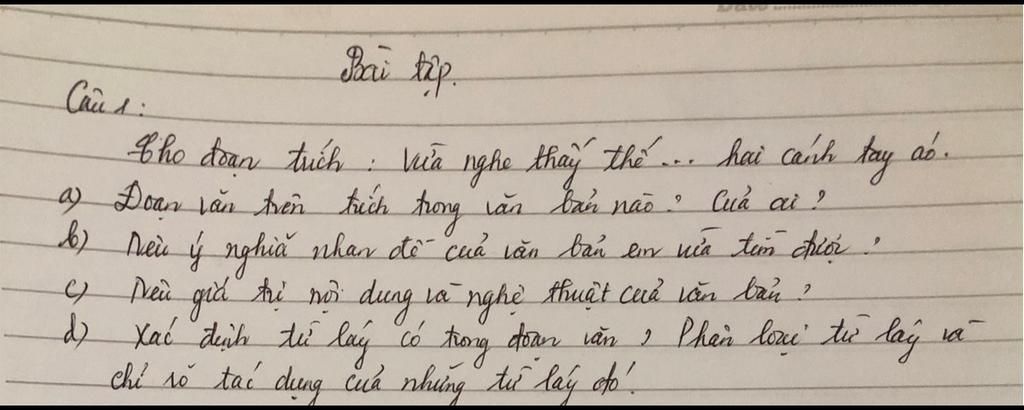 Bài tập.
Câu 1:
Cho đoạn trích: Vừa nghe thấy thế... hai cánh tay áo.
a) Đoạn văn trên trích trong văn bản nào? Của ai?
b) Nêu ý nghĩa nhan đề của văn bản em vừa tìm được?
c) Nêu giá trị nội dung và nghệ thuật của văn bản?
d) Xác định từ láy có trong đoạn văn? Phân loại từ láy và
chỉ rõ tác dụng của những từ láy đó!